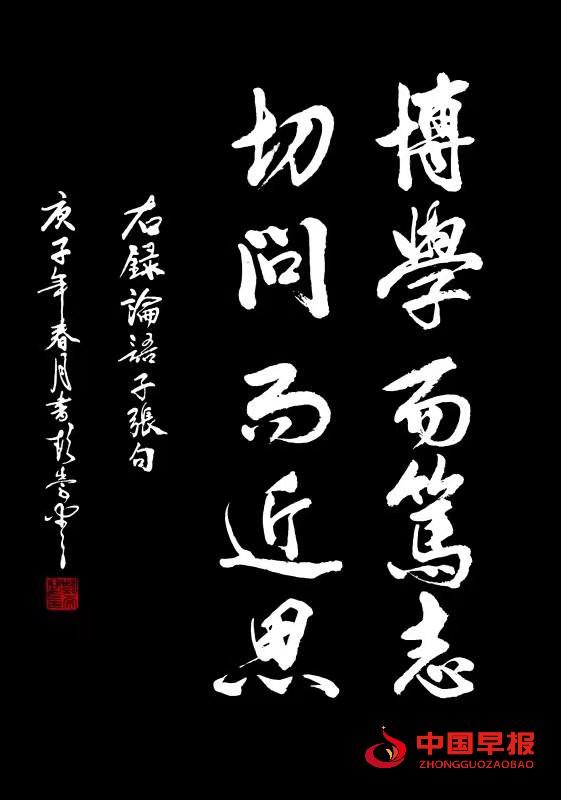 博學而篤志
切問而近思
右録論語子張句
庚子年春月書彭
中国早报
ZHONGGUOZAOBAO